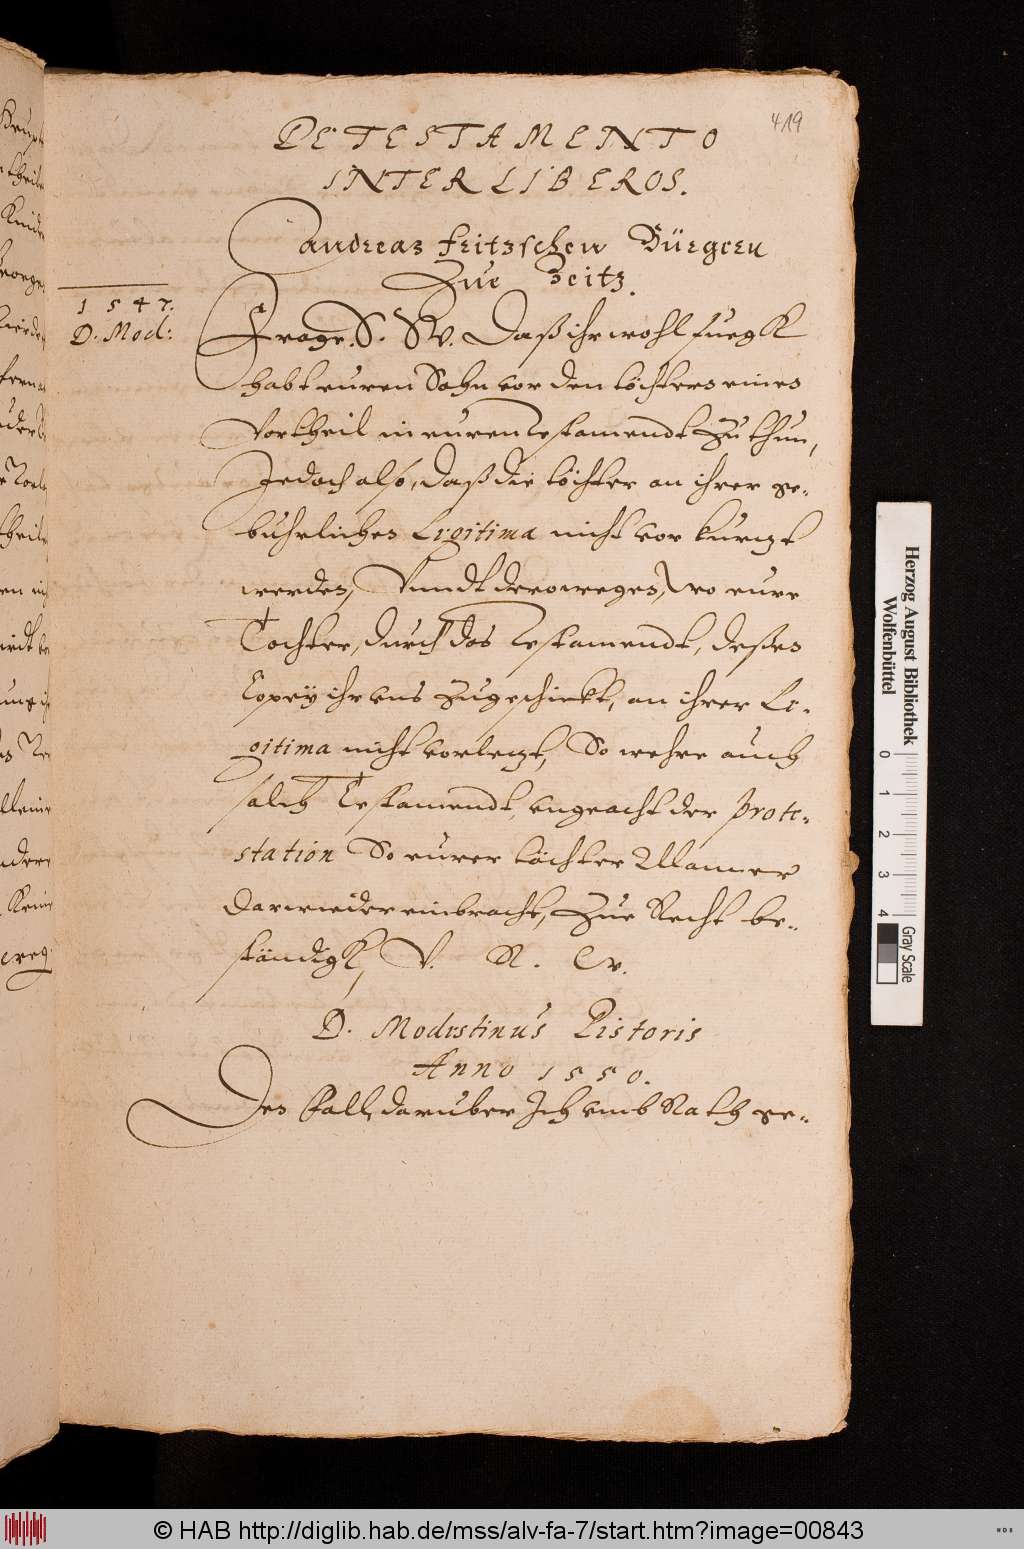 419
DE TESTAMENTO
INTER LIBEROS.
Candreas Fritzschen Bürgern
Zue Zeitz.
1547.
D. Mod:
Frage. S. W. Daß ihr wohl fueg
habt euren Sohn vor den töchtern einen
Vortheil in euren Testamendt zu thun,
Jedoch also, daß die töchter an ihrer ge-
buhrlichen Legitima nicht vorkurtzt
werden, Vnndt deroweges, wo eure
Tochter, durch das Testamendt, deßen
Copey ihr vns zugeschickt, an ihrer Le-
gitima nicht vorletzt, So wehre auch
solch Testamendt, vngeacht der prote-
station So eurer töchter Manner
darwieder einbracht, Zue Recht be-
ständig, V. R. W.
D. Modestinus Pistoris
Anno 1550.
Den Fall, daruber Ich vmb Rath ge-
Herzog August Bibliothek
Wolfenbüttel
0 1 2 3 4
Gray Scale
© HAB http://diglib.hab.de/mss/alv-fa-7/start.htm?image=00843